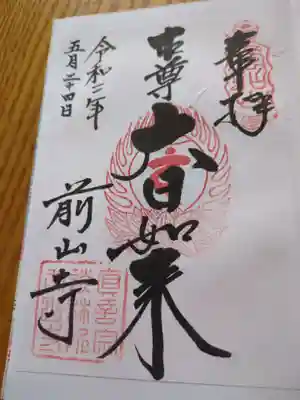 奉拝
本尊
大日如来
令和二年
五月二十四日
前山寺
真言宗